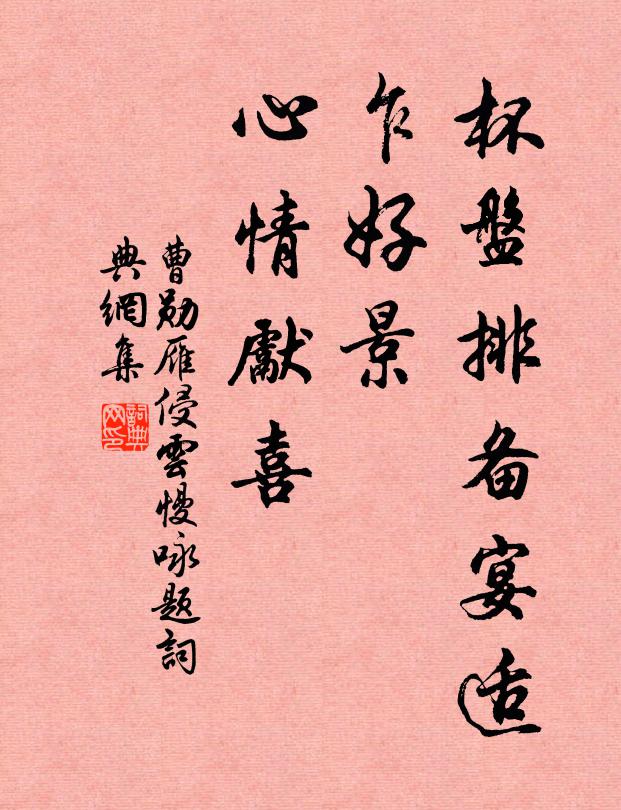 杯盤排备宴适
乍好景
心情獻喜
曹勛雁侵雲慢咏题詞
典網集
詞典網印